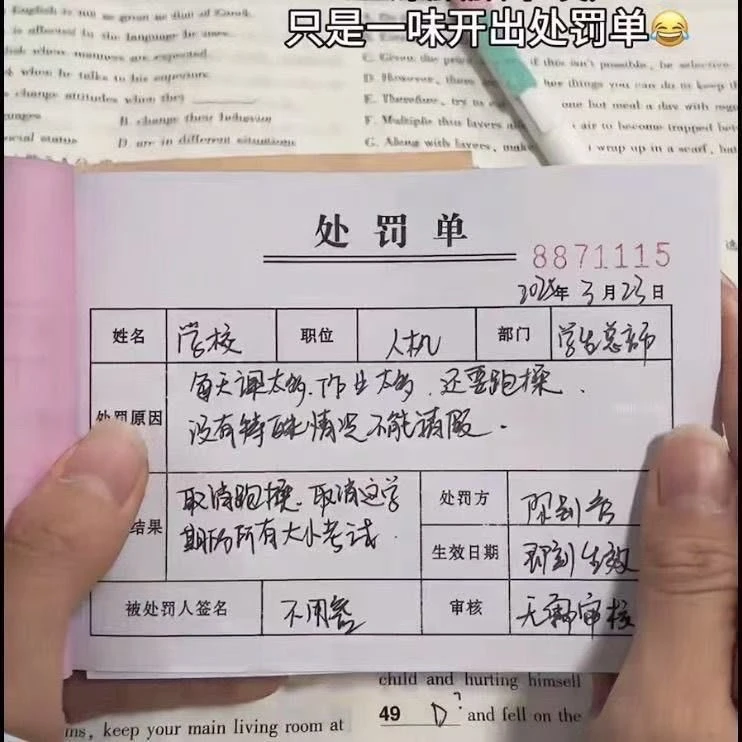 只是一味开出处罚单😂
English is not as great as that of Greek.
is affected by the language he uses.
when he talks to his superiors.
change attitudes when they ______
B. change their behavior
social status D. are in different situations
if this isn't possible, be selective.
D. However, there
her things you can do to keep
E. Therefore, try to
one hot meal a day with
F. Multiple thin layers
air to become trapped
G. Along with layers, make
wrap up in a scarf,
处罚单
8871115
年3月23日
姓名 学校 职位 人机 部门 学生总部
处罚原因 每天课太多、作业太多、还要跑操、
没有特殊情况不能请假.
结果 取消跑操、取消这学
期所有大小考试.
处罚方
生效日期 即刻生效
被处罚人签名 不用签 审核 无需审核
child and hurting himself
ms, keep your main living room at 49 D? and fell on the